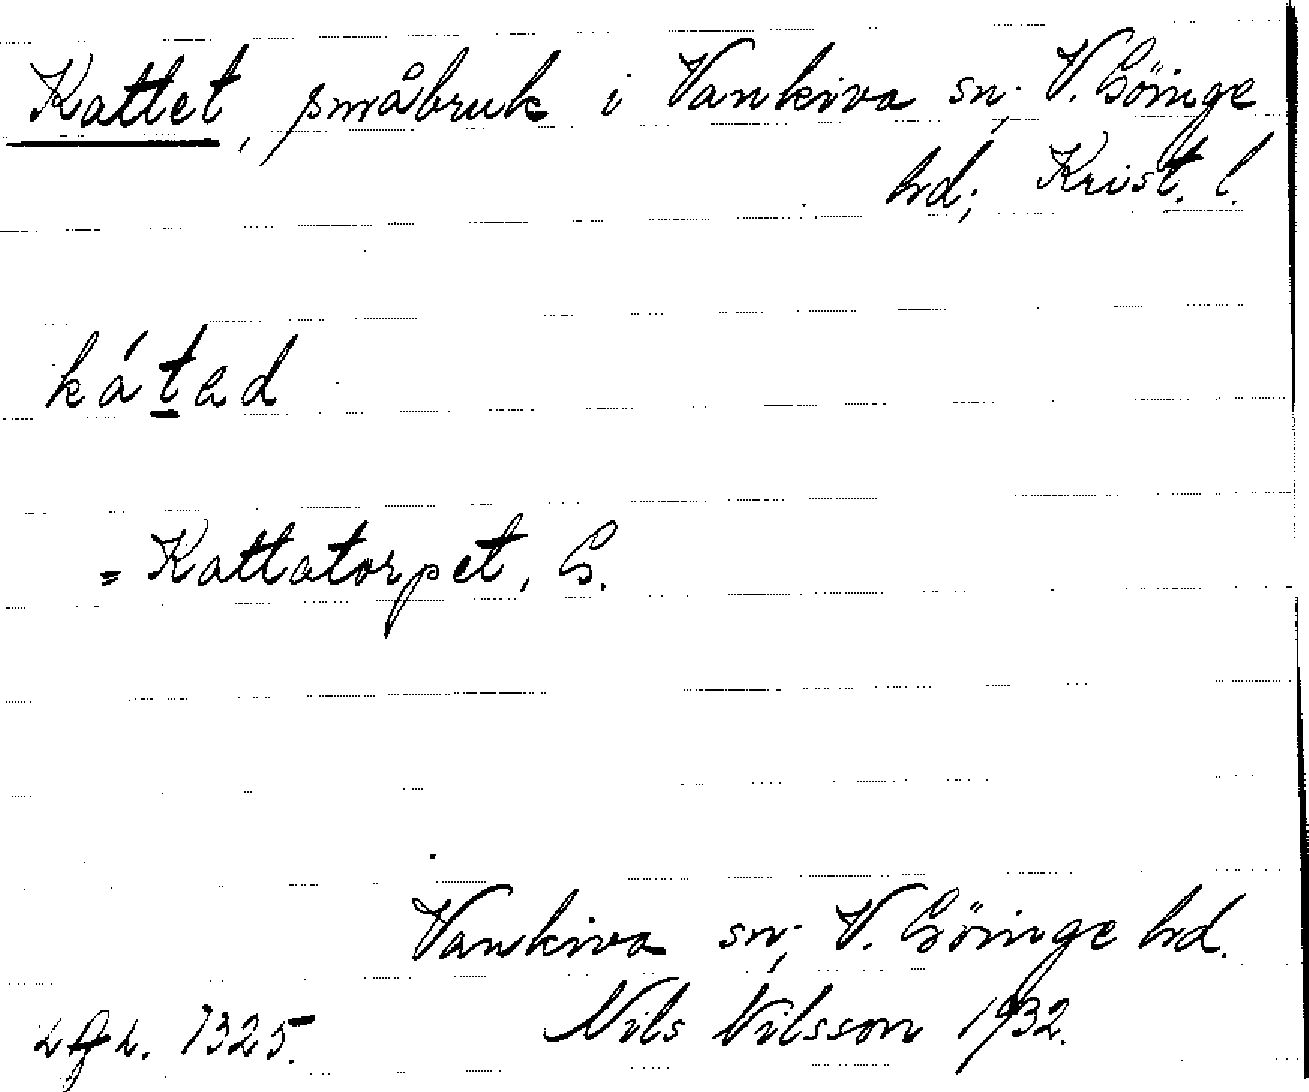 Kattet, småbruk i Vankiva sn; V. Göinge
hd; Krist. l.
kátad
= Kattatorpet, G.
Vankiva sn; V. Göinge hd.
Nils Nilsson 1932.
1325.